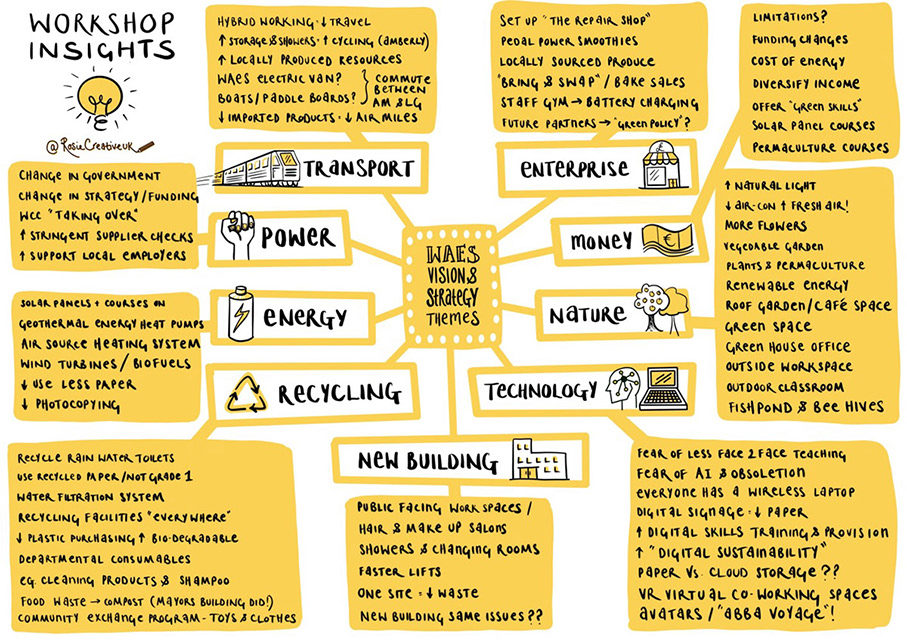 WORKSHOP
INSIGHTS
@RosieCreativeUK
HYBRID WORKING = ↓ TRAVEL
↑ STORAGE & SHOWERS = ↑ CYCLING (AMBERLY)
↑ LOCALLY PRODUCED RESOURCES
WAES ELECTRIC VAN?
BOATS/PADDLE BOARDS?
} COMMUTE
BETWEEN
AM & LG
↓ IMPORTED PRODUCTS = ↓ AIR MILES
TRANSPORT
SET UP "THE REPAIR SHOP"
PEDAL POWER SMOOTHIES
LOCALLY SOURCED PRODUCE
"BRING & SWAP" / BAKE SALES
STAFF GYM → BATTERY CHARGING
FUTURE PARTNERS → "GREEN POLICY"?
ENTERPRISE
LIMITATIONS?
FUNDING CHANGES
COST OF ENERGY
DIVERSIFY INCOME
OFFER "GREEN SKILLS"
SOLAR PANEL COURSES
PERMACULTURE COURSES
MONEY
€
CHANGE IN GOVERNMENT
CHANGE IN STRATEGY/FUNDING
WCC "TAKING OVER"
↑ STRINGENT SUPPLIER CHECKS
↑ SUPPORT LOCAL EMPLOYERS
POWER
WAES
VISION &
STRATEGY
THEMES
↑ NATURAL LIGHT
↓ AIR-CON ↑ FRESH AIR!
MORE FLOWERS
VEGEDABLE GARDEN
PLANTS & PERMACULTURE
RENEWABLE ENERGY
ROOF GARDEN/CAFÉ SPACE
GREEN SPACE
GREEN HOUSE OFFICE
OUTSIDE WORKSPACE
OUTDOOR CLASSROOM
FISHPOND & BEE HIVES
NATURE
SOLAR PANELS + COURSES ON
GEOTHERMAL ENERGY HEAT PUMPS
AIR SOURCE HEATING SYSTEM
WIND TURBINES / BIOFUELS
↓ USE LESS PAPER
↓ PHOTOCOPYING
ENERGY
RECYCLING
TECHNOLOGY
RECYCLE RAIN WATER TOILETS
USE RECYCLED PAPER/NOT GRADE 1
WATER FILTRATION SYSTEM
RECYCLING FACILITIES "EVERYWHERE"
↓ PLASTIC PURCHASING ↑ BIO-DEGRADABLE
DEPARTMENTAL CONSUMABLES
EG. CLEANING PRODUCTS & SHAMPOO
FOOD WASTE → COMPOST (MAYORS BUILDING DID!)
COMMUNITY EXCHANGE PROGRAM - TOYS & CLOTHES
NEW BUILDING
PUBLIC FACING WORKSPACES /
HAIR & MAKE UP SALONS
SHOWERS & CHANGING ROOMS
FASTER LIFTS
ONE SITE = ↓ WASTE
NEW BUILDING SAME ISSUES??
FEAR OF LESS FACE 2 FACE TEACHING
FEAR OF AI & OBSOLETION
EVERYONE HAS A WIRELESS LAPTOP
DIGITAL SIGNAGE = ↓ PAPER
↑ DIGITAL SKILLS TRAINING & PROVISION
↑ "DIGITAL SUSTAINABILITY"
PAPER VS. CLOUD STORAGE ??
VR VIRTUAL CO-WORKING SPACES
AVATARS / "ABBA VOYAGE"!